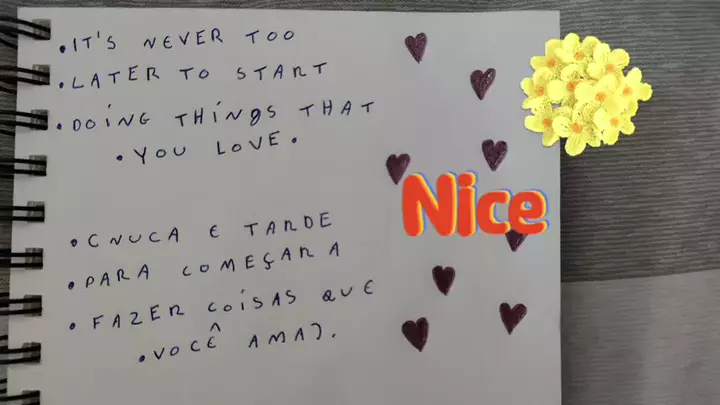 •IT'S NEVER TOO
•LATER TO START
•DOING THINGS THAT
•YOU LOVE.
Nice
•CNUCA E TARDE
•PARA COMEÇAR A
•FAZER COISAS QUE
•VOCÊ AMA).